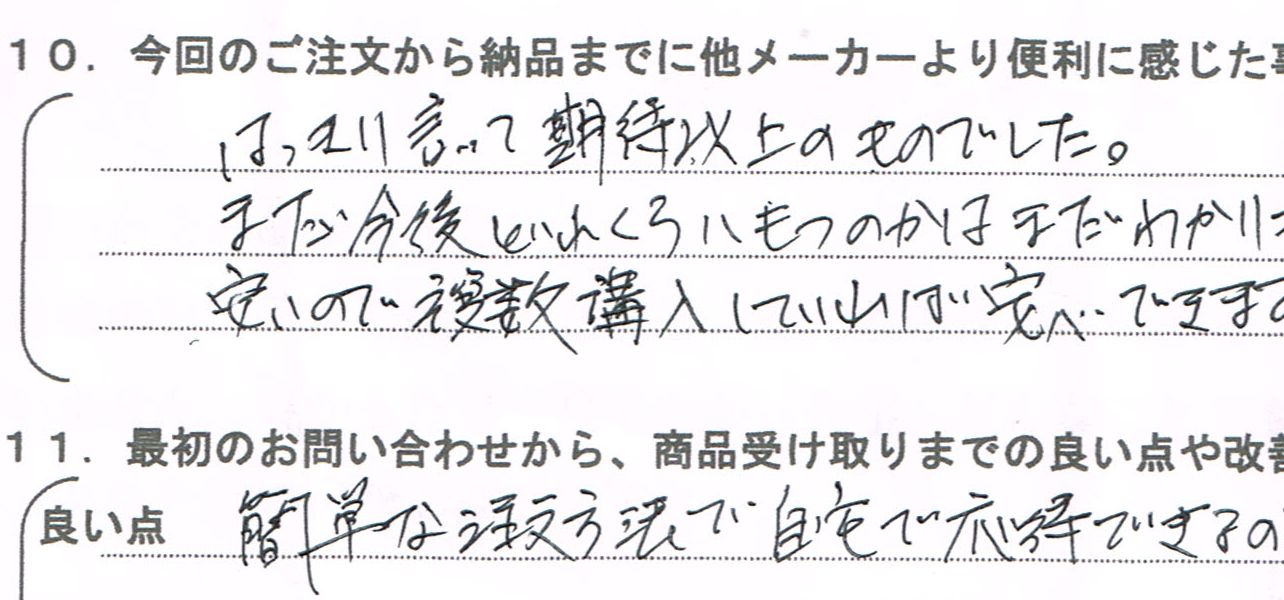 10. 今回のご注文から納品までに他メーカーより便利に感じた事
はっきり言って期待以上のものでした。
まだ今後どれくらいもつのかはまだわかりま
安いので複数購入していれば安心できます
11. 最初のお問い合わせから、商品受け取りまでの良い点や改善
良い点 簡単な注文方法で自宅で応対できるの